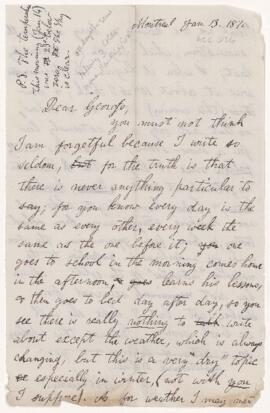 Montreal Jan 13. 187
P.S. The
this morning (Jan 14)
was 23° below
zero. The sky
is clear.
Dear George,
you must not think
I am forgetful because I write so
seldom, but for the truth is that
there is never anything particular to
say; for you know every day is the
same as every other, every week the
same as the one before it; you one
goes to school in the morning comes home
in the afternoon, & goes learns his lessons,
& then goes to bed day after day, so you
see there is really nothing to talk write
about except the weather, which is always
changing, but this is a very "dry" topic
especially in winter, (not with you
I suppose). As for weather I may men